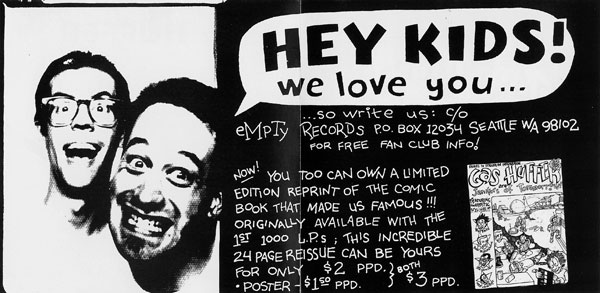 HEY KIDS!
we love you...
...so write us: c/o
eMpTy RECORDS P.O. BOX 12034 SEATTLE WA 98102
FOR FREE FAN CLUB INFO!
NOW! YOU TOO CAN OWN A LIMITED
EDITION REPRINT OF THE COMIC
BOOK THAT MADE US FAMOUS!!!
ORIGINALLY AVAILABLE WITH THE
1ST 1000 L.P.s; THIS INCREDIBLE
24 PAGE REISSUE CAN BE YOURS
FOR ONLY $2 PPD. } BOTH
• POSTER - $1.50 PPD. } $3 PPD.
GAS HUFFER